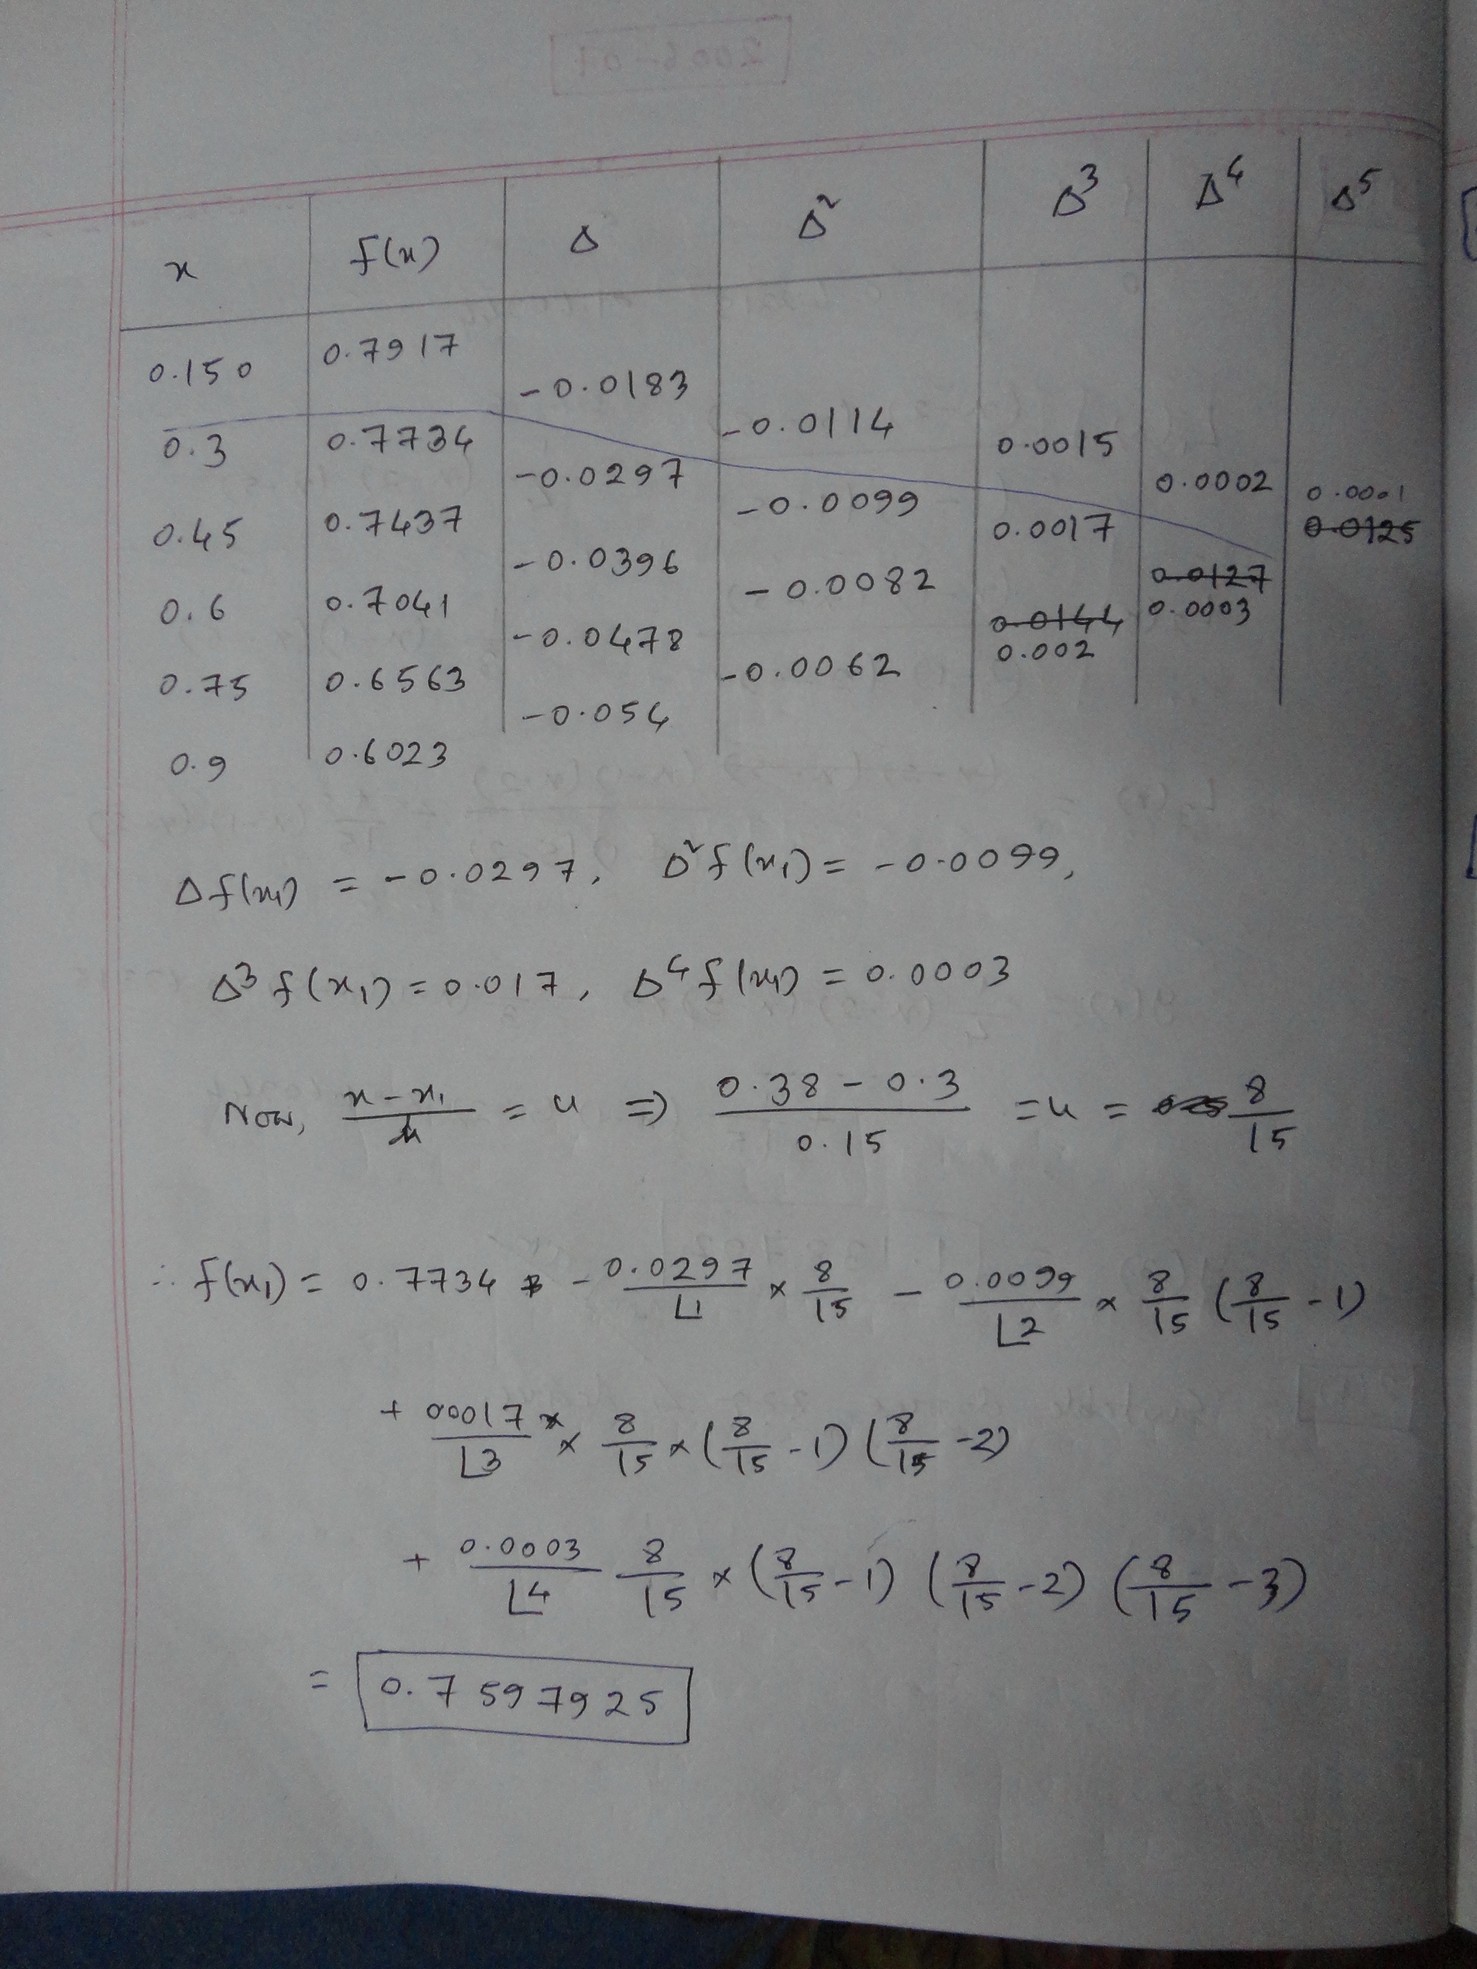 x f(x) Δ Δ² Δ³ Δ⁴ Δ⁵
0.150 0.7917
-0.0183
0.3 0.7734 -0.0114 0.0015
-0.0297 0.0002 0.0001
0.45 0.7437 -0.0099 0.0017 0.0125
-0.0396 0.0127
0.6 0.7041 -0.0082 0.0144 0.0003
-0.0478 0.002
0.75 0.6563 -0.0062
-0.054
0.9 0.6023
Δf(x₁) = -0.0297, Δ²f(x₁) = -0.0099,
Δ³f(x₁) = 0.017, Δ⁴f(x₁) = 0.0003
Now, (x - x₁)/h = u ⇒ (0.38 - 0.3)/0.15 = u = 8/15
∴ f(x₁) = 0.7734 - 0.0297/∟1 × 8/15 - 0.0099/∟2 × 8/15 (8/15 - 1)
+ 00017/∟3 × 8/15 × (8/15 - 1) (8/15 - 2)
+ 0.0003/∟4 8/15 × (8/15 - 1) (8/15 - 2) (8/15 - 3)
= 0.7597925